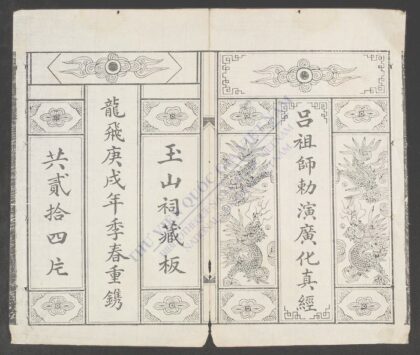 呂祖師勅演廣化真經
玉山祠藏板
龍飛庚戌年季春重鐫
共貳拾四片
THƯ VIỆN QUỐC GIA VIỆT NAM